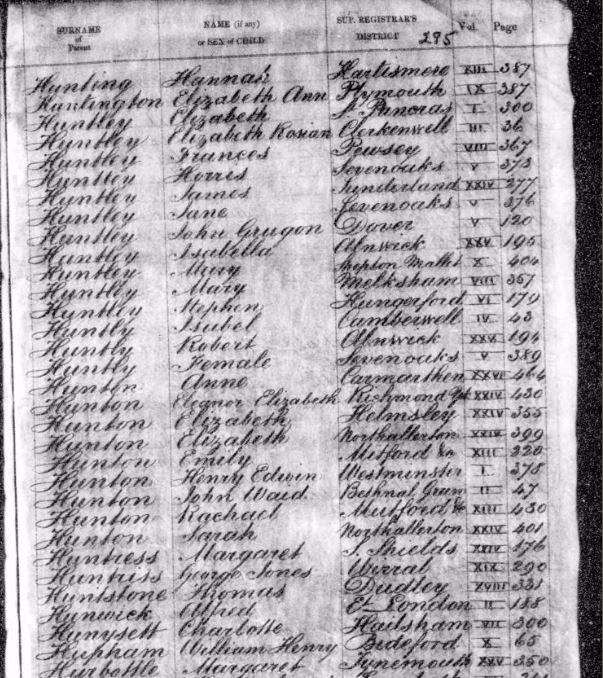 SURNAME of Parent NAME (if any) or SEX of CHILD SUP. REGISTRAR'S DISTRICT 295 Vol. Page
Hunting Hannah Hartismere XIII 387
Huntington Elizabeth Ann Plymouth IX 387
Huntley Elizabeth S. Pancras I 300
Huntley Elizabeth Rosian Clerkenwell III 36
Huntley Frances Pewsey VIII 367
Huntley Horris Sevenoaks V 373
Huntley James Sunderland XXIV 277
Huntley Jane Sevenoaks V 376
Huntley John Grugon Dover V 120
Huntley Isabella Alnwick XXV 195
Huntley Mary Shepton Mallet X 404
Huntley Mary Melksham VIII 357
Huntley Stephen Hungerford VI 179
Huntly Isabel Camberwell IV 43
Huntly Robert Alnwick XXV 194
Huntly Female Sevenoaks V 389
Hunton Anne Carmarthen XXVI 464
Hunton Eleanor Elizabeth Richmond XXIV 430
Hunton Elizabeth Helmsley XXIV 355
Hunton Elizabeth Northallerton XXIV 399
Hunton Emily Mitford &c XIII 220
Hunton Henry Edwin Westminster I 378
Hunton John Waid Bethnal Green II 47
Hunton Rachael Mutford & XIII 430
Hunton Sarah Northallerton XXIV 401
Huntress Margaret S. Shields XXIV 176
Huntriss George Jones Wirral XIX 290
Huntstone Thomas Dudley XVIII 331
Hunwick Alfred E. London II 188
Hunysett Charlotte Hailsham VII 300
Hupham William Henry Bideford X 65
Hurbottle Margaret Tynemouth XXV 350